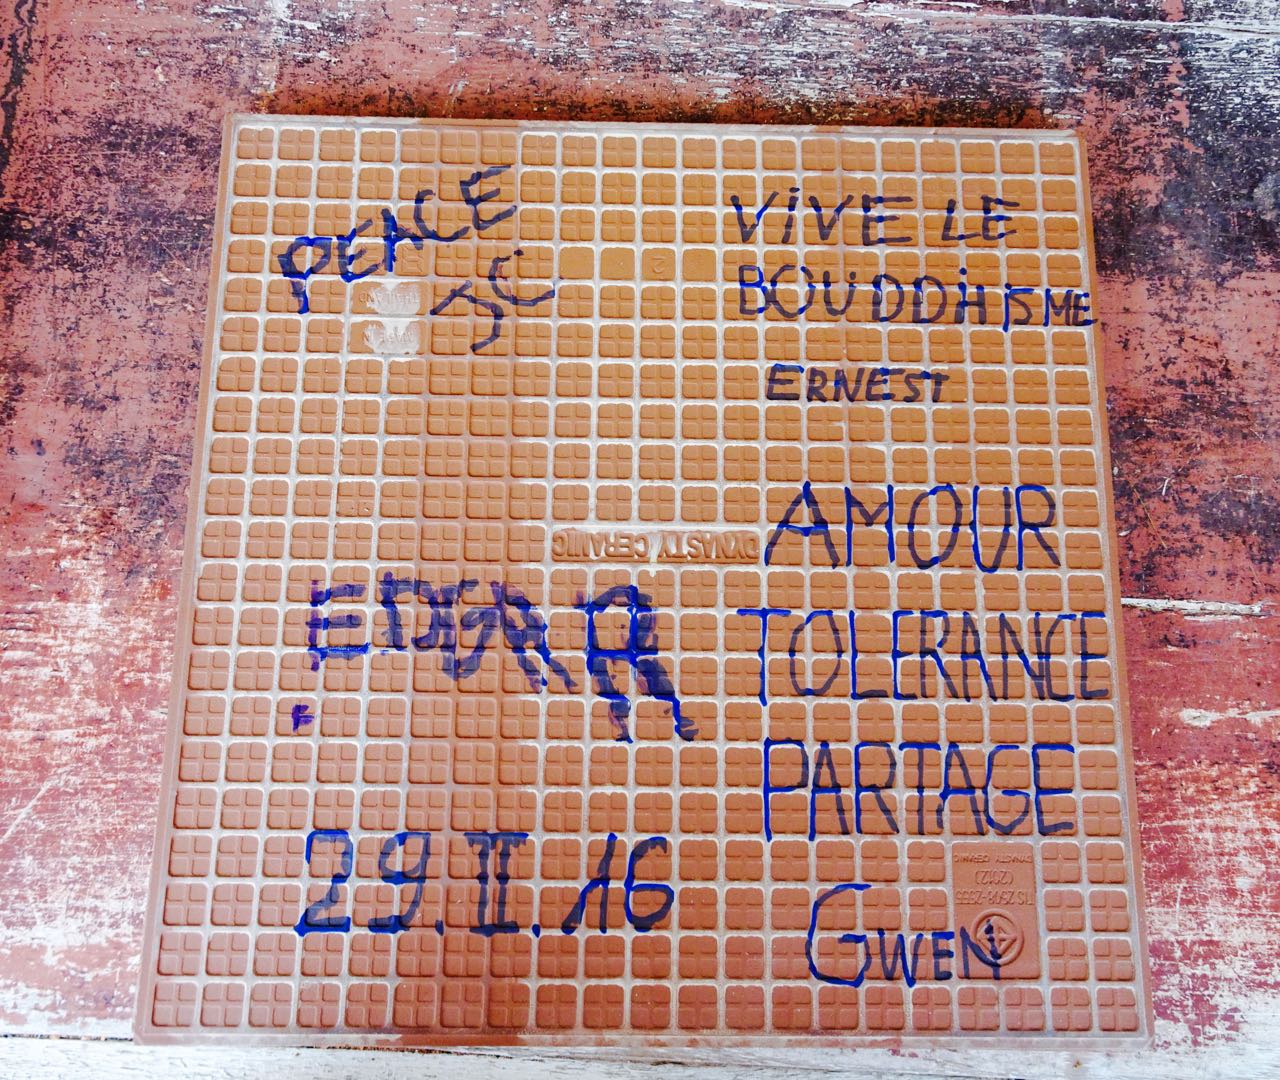 PEACE
JC
VIVE LE
BOUDDHISME
ERNEST
THAILAND
DYNASTY CERAMIC
AMOUR
TOLERANCE
EDGAR
PARTAGE
29.II.16
GWEN
DYNASTY CERAMIC
(2012)
TIS 2508-2555